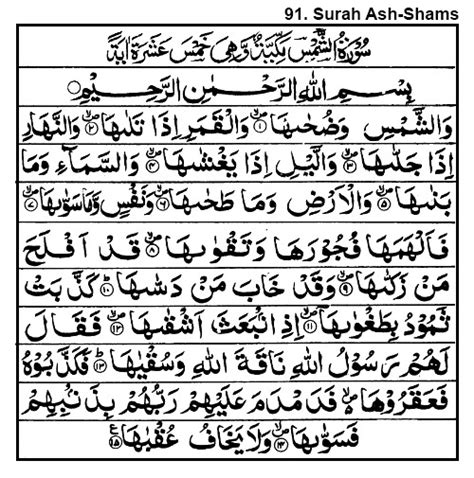 91. Surah Ash-Shams
سُوْرَةُ الشَّمْسِ مَكِّيَّةٌ وَّهِيَ خَمْسَ عَشَرَةَ اٰيَةً
بِسْمِ اللهِ الرَّحْمٰنِ الرَّحِيْمِ
وَالشَّمْسِ وَضُحٰىهَا ۝۱ وَالْقَمَرِ اِذَا تَلٰىهَا ۝۲ وَالنَّهَارِ
اِذَا جَلّٰىهَا ۝۳ وَالَّيْلِ اِذَا يَغْشٰىهَا ۝۴ وَالسَّمَآءِ وَمَا
بَنٰىهَا ۝۵ وَالْاَرْضِ وَمَا طَحٰىهَا ۝۶ وَنَفْسٍ وَّمَا سَوّٰىهَا ۝۷
فَاَلْهَمَهَا فُجُوْرَهَا وَتَقْوٰىهَا ۝۸ قَدْ اَفْلَحَ
مَنْ زَكّٰىهَا ۝۹ وَقَدْ خَابَ مَنْ دَسّٰىهَا ۝۱۰ كَذَّبَتْ
ثَمُوْدُ بِطَغْوٰىهَا ۝۱۱ اِذِ انْۢبَعَثَ اَشْقٰىهَا ۝۱۲ فَقَالَ
لَهُمْ رَسُوْلُ اللهِ نَاقَةَ اللهِ وَسُقْيٰهَا ۝۱۳ فَكَذَّبُوْهُ
فَعَقَرُوْهَا فَدَمْدَمَ عَلَيْهِمْ رَبُّهُمْ بِذَنْۢبِهِمْ
فَسَوّٰىهَا ۝۱۴ وَلَا يَخَافُ عُقْبٰهَا ۝۱۵